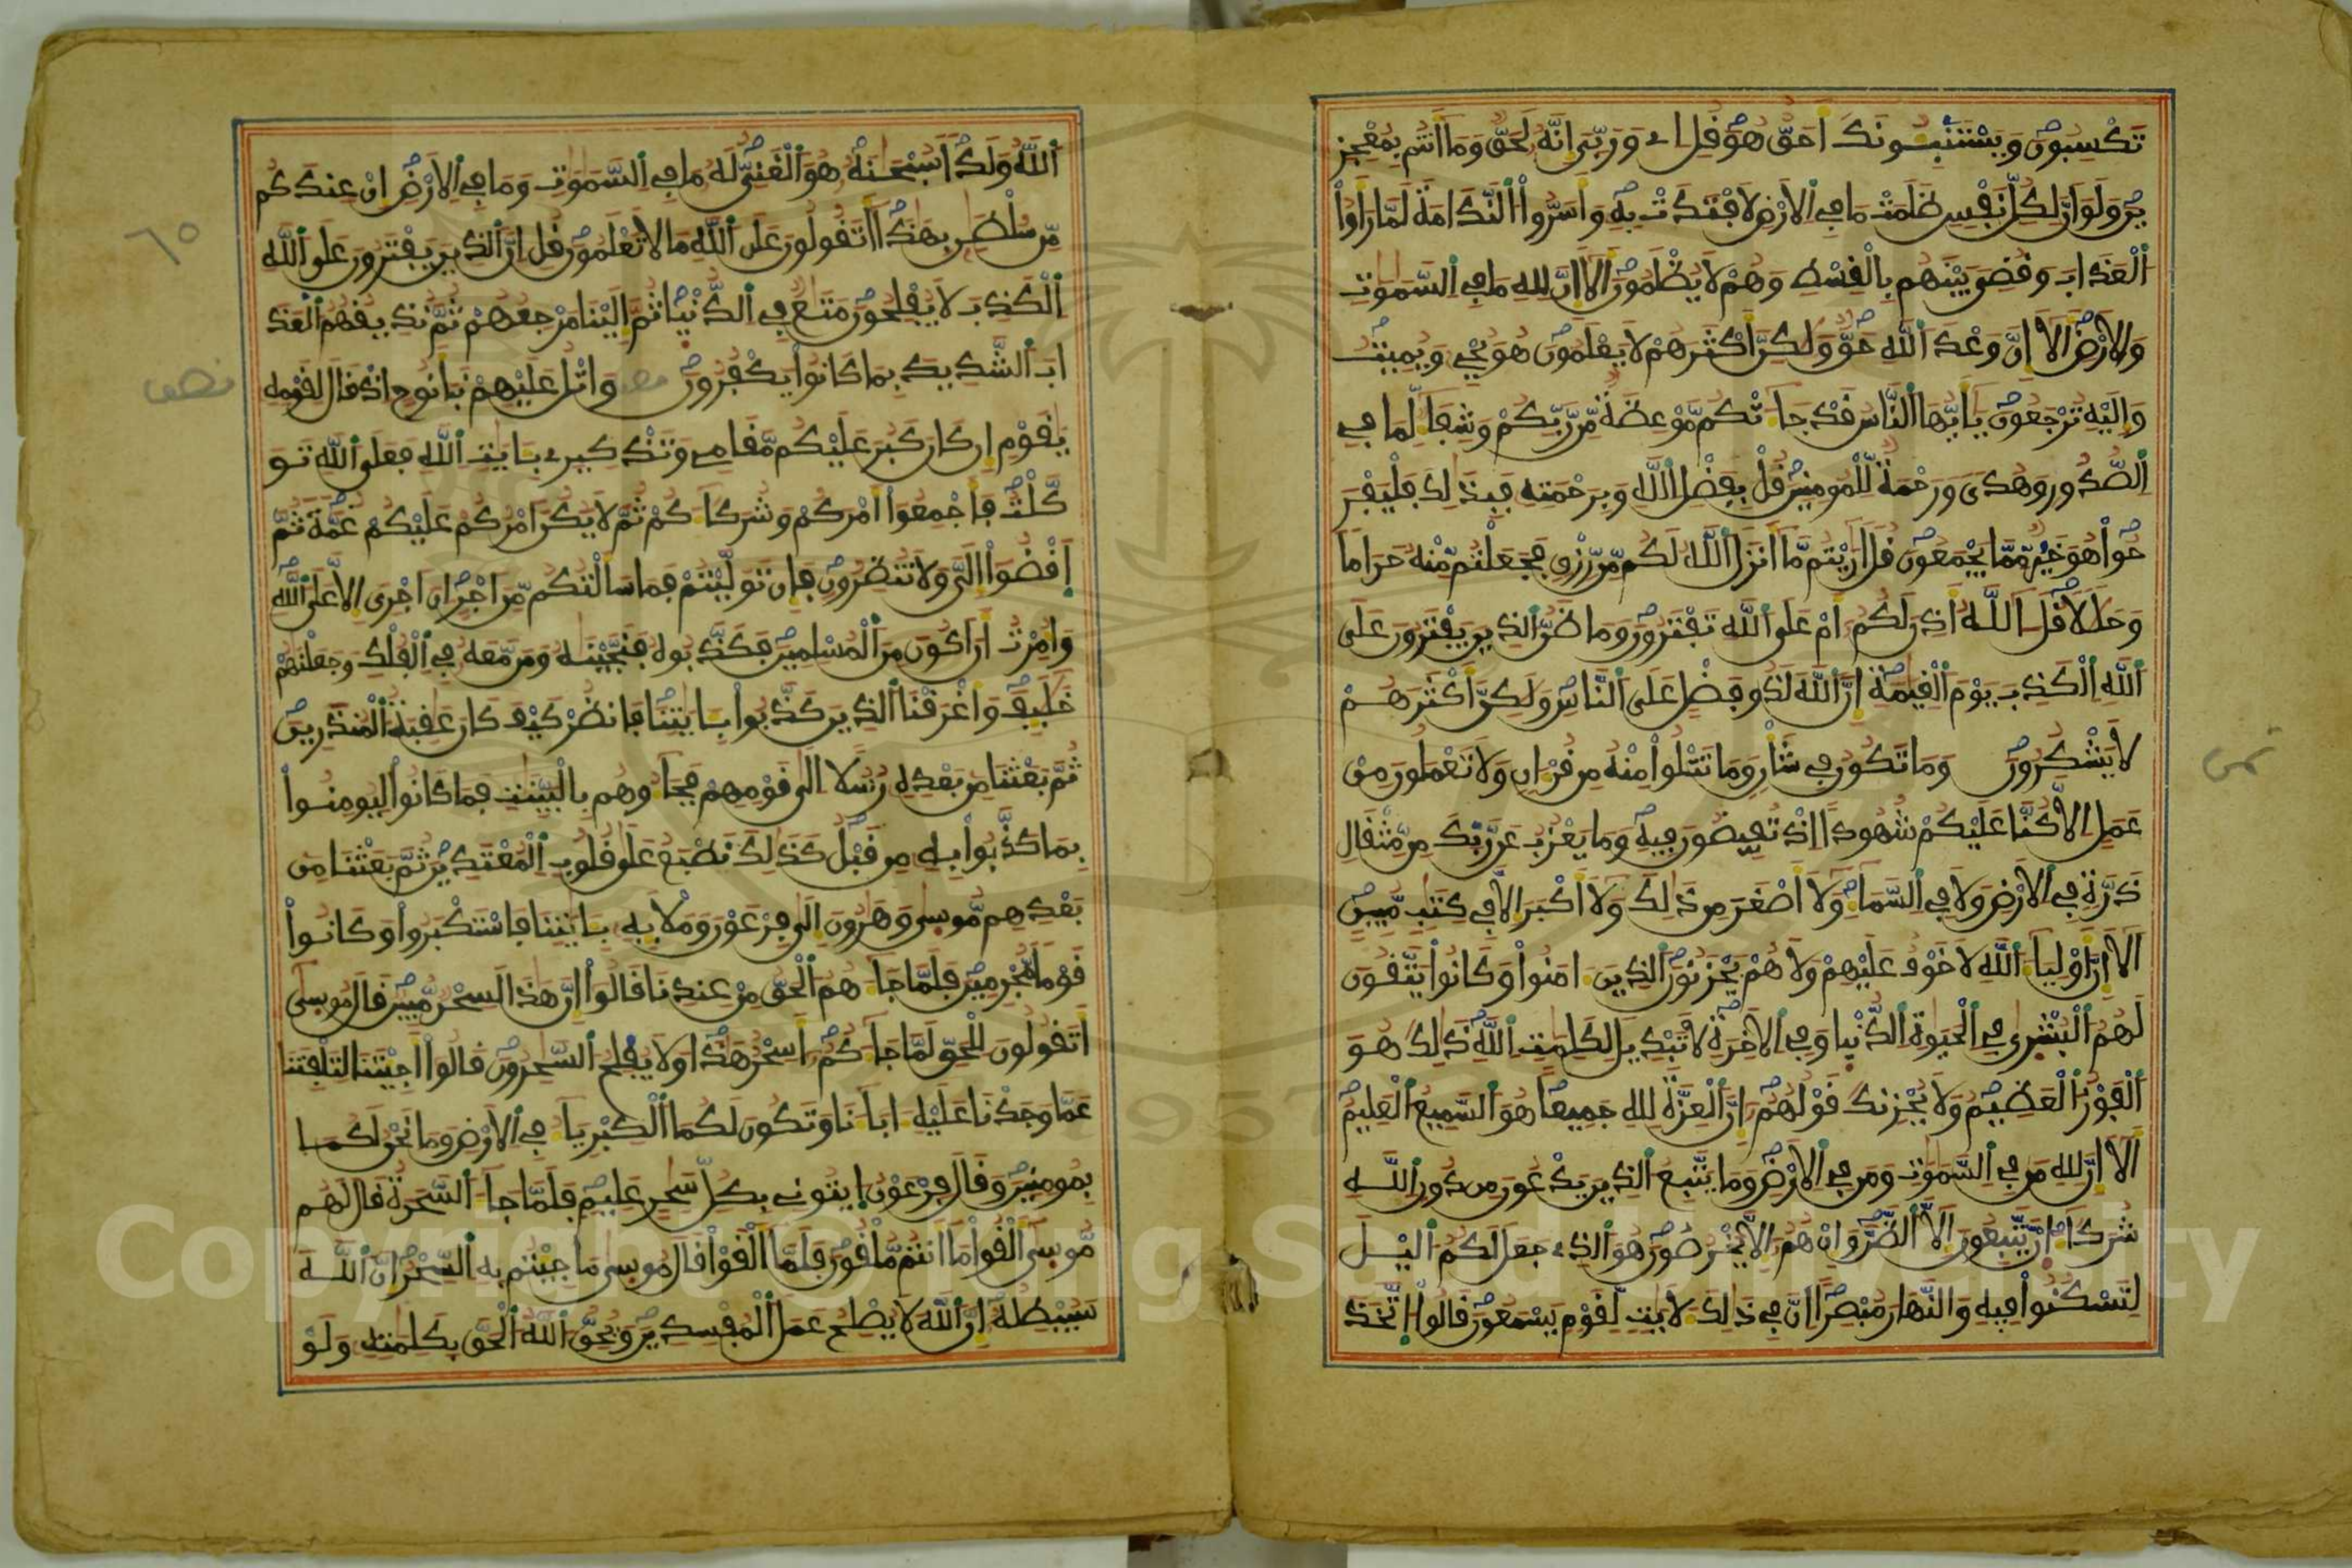 تكسبون ويستنبـونك احق هو قل اے وربي انه لحق وما انتم بمعجز
ين ولو ان لكل نفس ظلمت ما في الارض لافتدت به واسروا الندامة لما راوا
العذاب وقضي بينهم بالقسط وهم لا يظلمون الا ان لله ما في السموت
والارض الا ان وعد الله حق ولكن اكثرهم لا يعلمون هو يحي ويميت
واليه ترجعون يايها الناس قد جاتكم موعظة من ربكم وشفا لما في
الصدور وهدى ورحمة للمومنين قل بفضل الله وبرحمته فبذلك فليفر
حوا هو خير مما يجمعون قل اريتم ما انزل الله لكم من رزق فجعلتم منه حراما
وحللا قل الله اذن لكم ام على الله تفترون وما ظن الذين يفترون على
الله الكذب يوم القيمة ان الله لذو فضل على الناس ولكن اكثرهم
لا يشكرون وما تكون في شان وما تتلوا منه من قران ولا تعملون من
عمل الا كنا عليكم شهودا اذ تفيضون فيه وما يعزب عن ربك من مثقال
ذرة في الارض ولا في السما ولا اصغر من ذلك ولا اكبر الا في كتب مبين
الا ان اوليا الله لا خوف عليهم ولا هم يحزنون الذين امنوا وكانوا يتقون
لهم البشرى في الحيوة الدنيا وفي الاخرة لا تبديل لكلمت الله ذلك هو
الفوز العظيم ولا يحزنك قولهم ان العزة لله جميعا هو السميع العليم
الا ان لله من في السموت ومن في الارض وما يتبع الذين يدعون من دون الله
شركا ان يتبعون الا الظن وان هم الا يخرصون هو الذے جعل لكم اليل
لتسكنوا فيه والنهار مبصرا ان في ذلك لايت لقوم يسمعون قالوا اتخذ
ثمن
الله ولدا سبحنه هو الغني له ما في السموت وما في الارض ان عندكم
من سلطن بهذا اتقولون على الله ما لا تعلمون قل ان الذين يفترون على الله
الكذب لا يفلحون متع في الدنيا ثم الينا مرجعهم ثم نذيقهم العذ
اب الشديد بما كانوا يكفرون واتل عليهم نبا نوح اذ قال لقومه
يقوم ان كان كبر عليكم مقامے وتذكيرے بـايت الله فعلى الله تو
كلت فاجمعوا امركم وشركاكم ثم لا يكن امركم عليكم غمة ثم
اقضوا الي ولا تنظرون فان توليتم فما سالتكم من اجر ان اجري الا على الله
وامرت ان اكون من المسلمين فكذبوه فنجينه ومن معه في الفلك وجعلنهم
خليف واغرقنا الذين كذبوا بـايتنا فانظر كيف كان عقبة المنذرين
ثم بعثنا من بعده رسلا الى قومهم فجاوهم بالبينت فما كانوا ليومنوا
بما كذبوا به من قبل كذلك نطبع على قلوب المعتدين ثم بعثنا من
بعدهم موسى وهرون الى فرعون وملايه بـايتنا فاستكبروا وكانوا
قوما مجرمين فلما جاهم الحق من عندنا قالوا ان هذا لسحر مبين قال موسى
اتقولون للحق لما جاكم اسحر هذا ولا يفلح السحرون قالوا اجيتنا لتلفتنا
عما وجدنا عليه ابانا وتكون لكما الكبريا في الارض وما نحن لكما
بمومنين وقال فرعون ايتوني بكل سحر عليم فلما جا السحرة قال لهم
موسى القوا ما انتم ملقون فلما القوا قال موسى ما جيتم به السحر ان الله
سيبطله ان الله لا يصلح عمل المفسدين ويحق الله الحق بكلمته ولو
٦٥
نصف
Copyright © King Saud University
1957